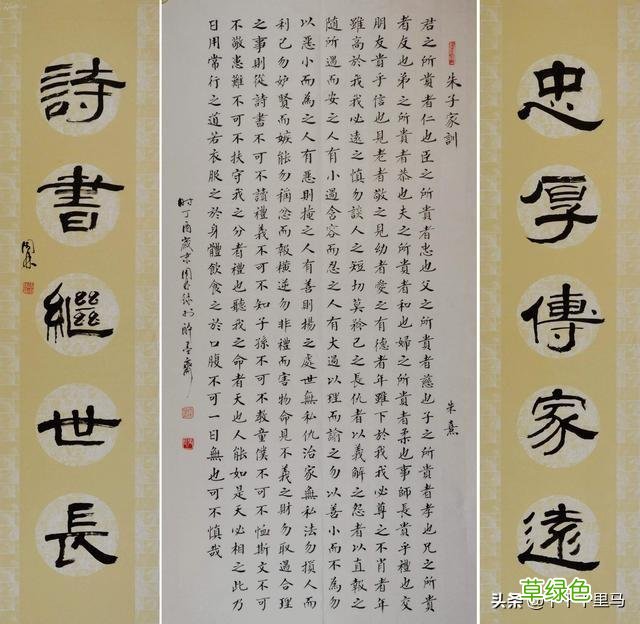 忠厚傳家遠
朱子家訓 朱熹
君之所貴者仁也臣之所貴者忠也父之所貴者慈也子之所貴者孝也兄之所貴
者友也弟之所貴者恭也夫之所貴者和也婦之所貴者柔也事師長貴乎禮也交
朋友貴乎信也見老者敬之見幼者愛之有德者年雖下於我我必尊之不肖者年
雖高於我我必遠之慎勿談人之短切莫矜己之長仇者以義解之怨者以直報之
隨所遇而安之人有小過含容而忍之人有大過以理而諭之勿以善小而不為勿
以惡小而為之人有惡則掩之人有善則揚之處世無私仇治家無私法勿損人而
利己勿妒賢而嫉能勿稱忿而報橫逆勿非禮而害物命見不義之財勿取遇合理
之事則從詩書不可不讀禮義不可不知子孫不可不教童僕不可不恤斯文不可
不敬患難不可不扶守我之分者禮也聽我之命者天也人能如是天必相之此乃
日用常行之道若衣服之於身體飲食之於口腹不可一日無也可不慎哉
时丁酉歲京
詩書繼世長
草绿色
头条 里马